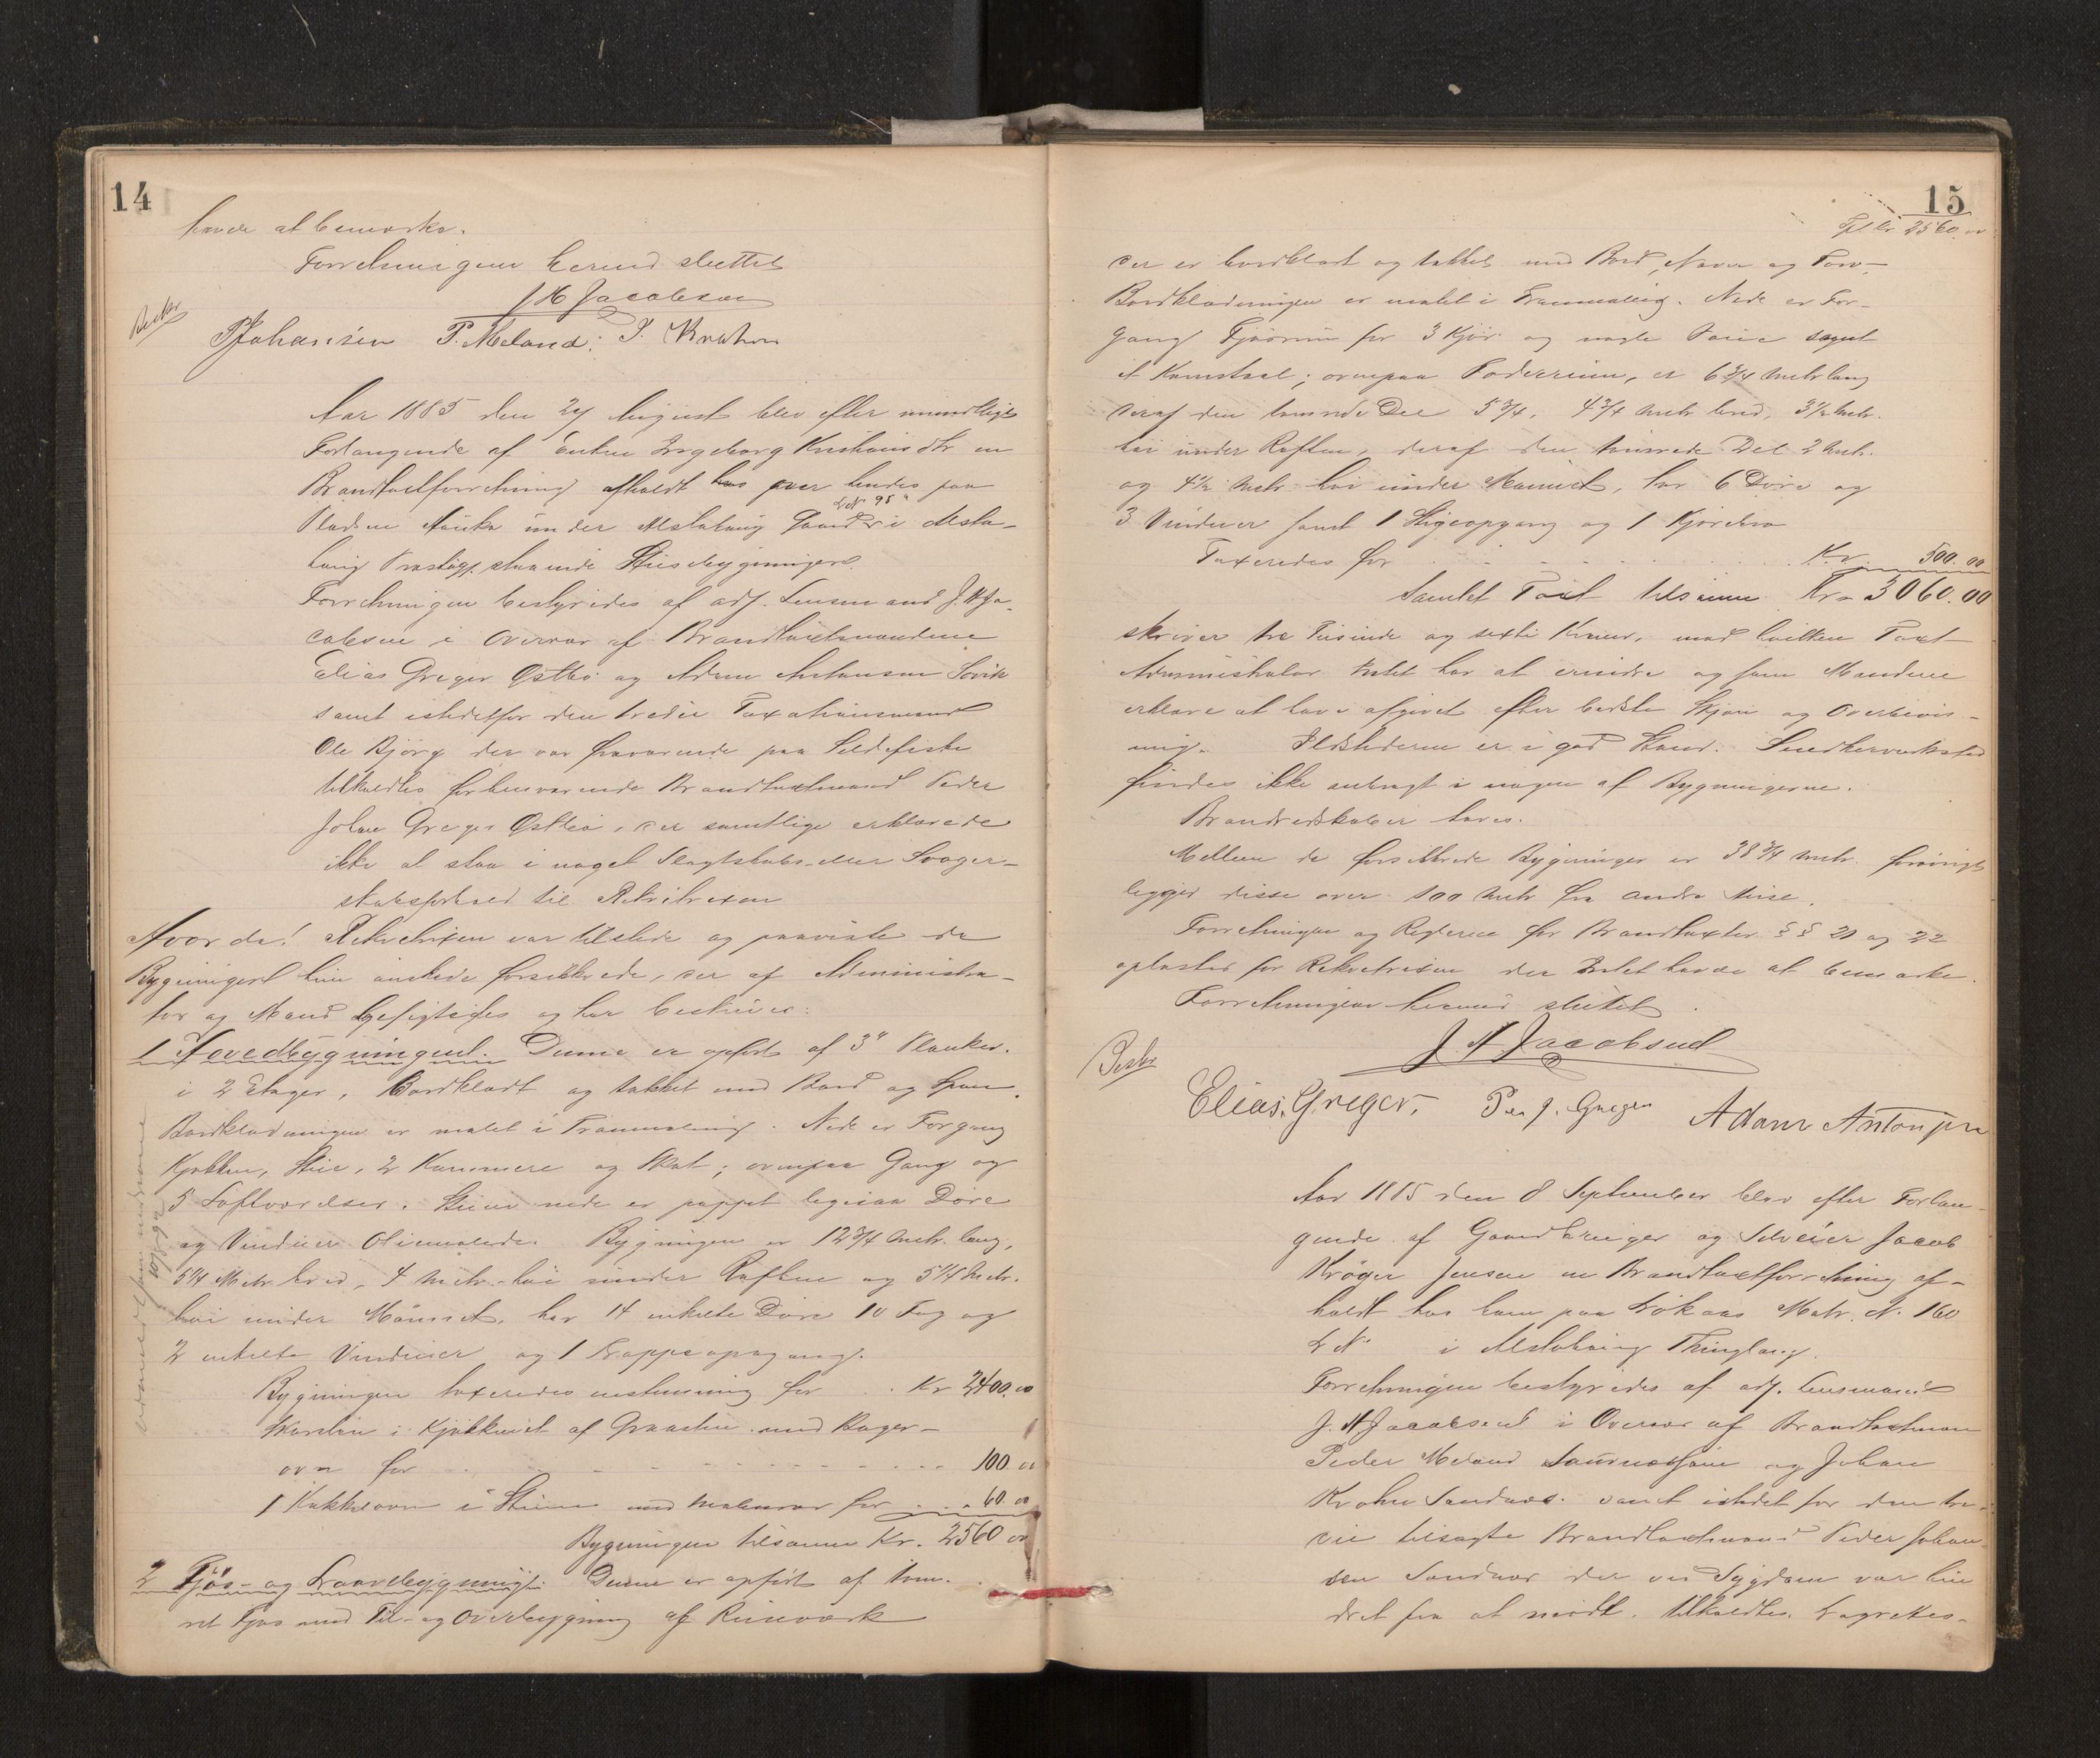 14
havde at bemærke.
Forretningen hermed sluttet
J H Jacobsen
Besbr
P Johansen P. Meland. J. Krohn
Aar 1885 den 27 August blev efter mundtligt
Forlangende af Enken Ingeborg Kristiansdtr en
Brandtaxtforretning afholdt hos over hendes paa
L.No 95"
Pladsen under Alstahaug Gaard i Alsta-
haug Præstegj. staaende Husebygninger.
Forretningen bestyredes af adj. Lensmand J. H Ja-
cobsen i Overvær af Brandtaxtmændene
Elias Greger Østbø og Adam Antonsen Søvik
samt istedetfor den tredie Taxationsmand
Ole Bjørg der var fraværende paa Sildefiske
tilkaldtes forhenværende Brandtaxtmand Peder
Johan Greger Østbø, der samtlige erklærede
ikke at staa i noget Slagtskabs eller Svoger-
skabsforhold til Rekvirenten
Hvorda! Rekvirenten var tilstede og paaviste de
Bygninger hun ønskede forsikrede, der af Administra-
tor og Mænd besigtiges og her beskrives:
1 Hovedbygningen. Denne er opført af 3" Planker
i 2 Etager, Bordklædt og tækket med Bord og Spon.
Bordklædningen er malet i Tranmaling. Nede er Forgang
Kjøkken, Stue, 2 Kammere og Skot; ovenpaa Gang og
5 Loftværelser. Stuen nede er pappet ligesaa Døre
og Vinduer Oliemalede. Bygningen er 12 3/4 Metr. lang,
5 1/4 Metr. bred, 4 Metr. høi under Raften og 5 1/4 Metr.
høi under Mønnet, har 14 enkelte Døre 10 Fag og
2 enkelte Vinduer og 1 Trappeopgang.
Bygningen taxeredes enstemmig for . . Kr 2400.00
Skorsten i Kjøkkenet af Graasten med Bager-
ovn for . . . . . . . . . . 100.00
1 Kakkelovn i Stuen med for . . . 60.00
Bygningen tilsammen Kr. 2560.00
2 Fjøs- og Laavebygning. Denne er opført af tøm-
ret Fjøs med Til- og Overbygning af Reisværk
15
Tpt Kr 2560.00
der er bordklædt og tækket med Bord, Næver og Torv.
Bordklædningen er malet i Tranmaling. Nede er For-
gang Fjøsrum for 3 Kjør og nogle Sauer samt
et Kornstaal; ovenpaa Foderrum, er 6 3/4 Metr lang
deraf den tømrede Del 5 3/4, 4 3/4 Metr bred, 3 1/2 Metr.
høi under Raften, deraf den tømrede Del 2 Metr.
og 4 1/2 Metr høi under Mønnet, har 6 Døre og
3 Vinduer samt 1 Stigeopgang og 1 Kjørebro
Taxeredes for . . . . . . Kr. 500.00
Samlet Taxt tilsammen Kr. 3060.00
skriver tre Tusinde og sexti Kroner, mod hvilken Taxt
Administrator Intet har at erindre og som Mændene
erklære at have afgivet efter bedste Skjøn og Overbevis-
ning. Ildstederne er i god Stand. Snedkerverksted
findes ikke anbragt i nogen af Bygningerne.
Brandredskaber haves.
Mellem de forsikrede Bygninger er 38 3/4 Metr. forøvrigt
ligger disse over 100 Metr fra andre Huse.
Forretningen og Reglerne for Brandtaxter §§ 21 og 22
oplæstes for Rekvirenten der Intet havde at bemærke.
Forretningen hermed sluttet.
J. H Jacobsen
Besbr
Elias. Greger. Per J. Greger Adam Antonsen
Aar 1885 den 8 September blev efter Forlan-
gende af Gaardbruger og Selveier Jacob
Krøger Jensen en Brandtaxtforretning af-
holdt hos ham paa Løkaas Matr. No 160
L No i Alstahaug Thinglaug.
Forretningen bestyredes af adj. Lensmand
J. H Jacobsen i Overvær af Brandtaxtmænd
Peder Meland Søvnesøien og Johan
Krohn Sandnæs. samt istedet for den tre-
die tilsagte Brandtaxtmand Peder Johan
sen Sandnæs der ved Sygdom var hin
dret fra at møde tilkaldtes Lagrettes-